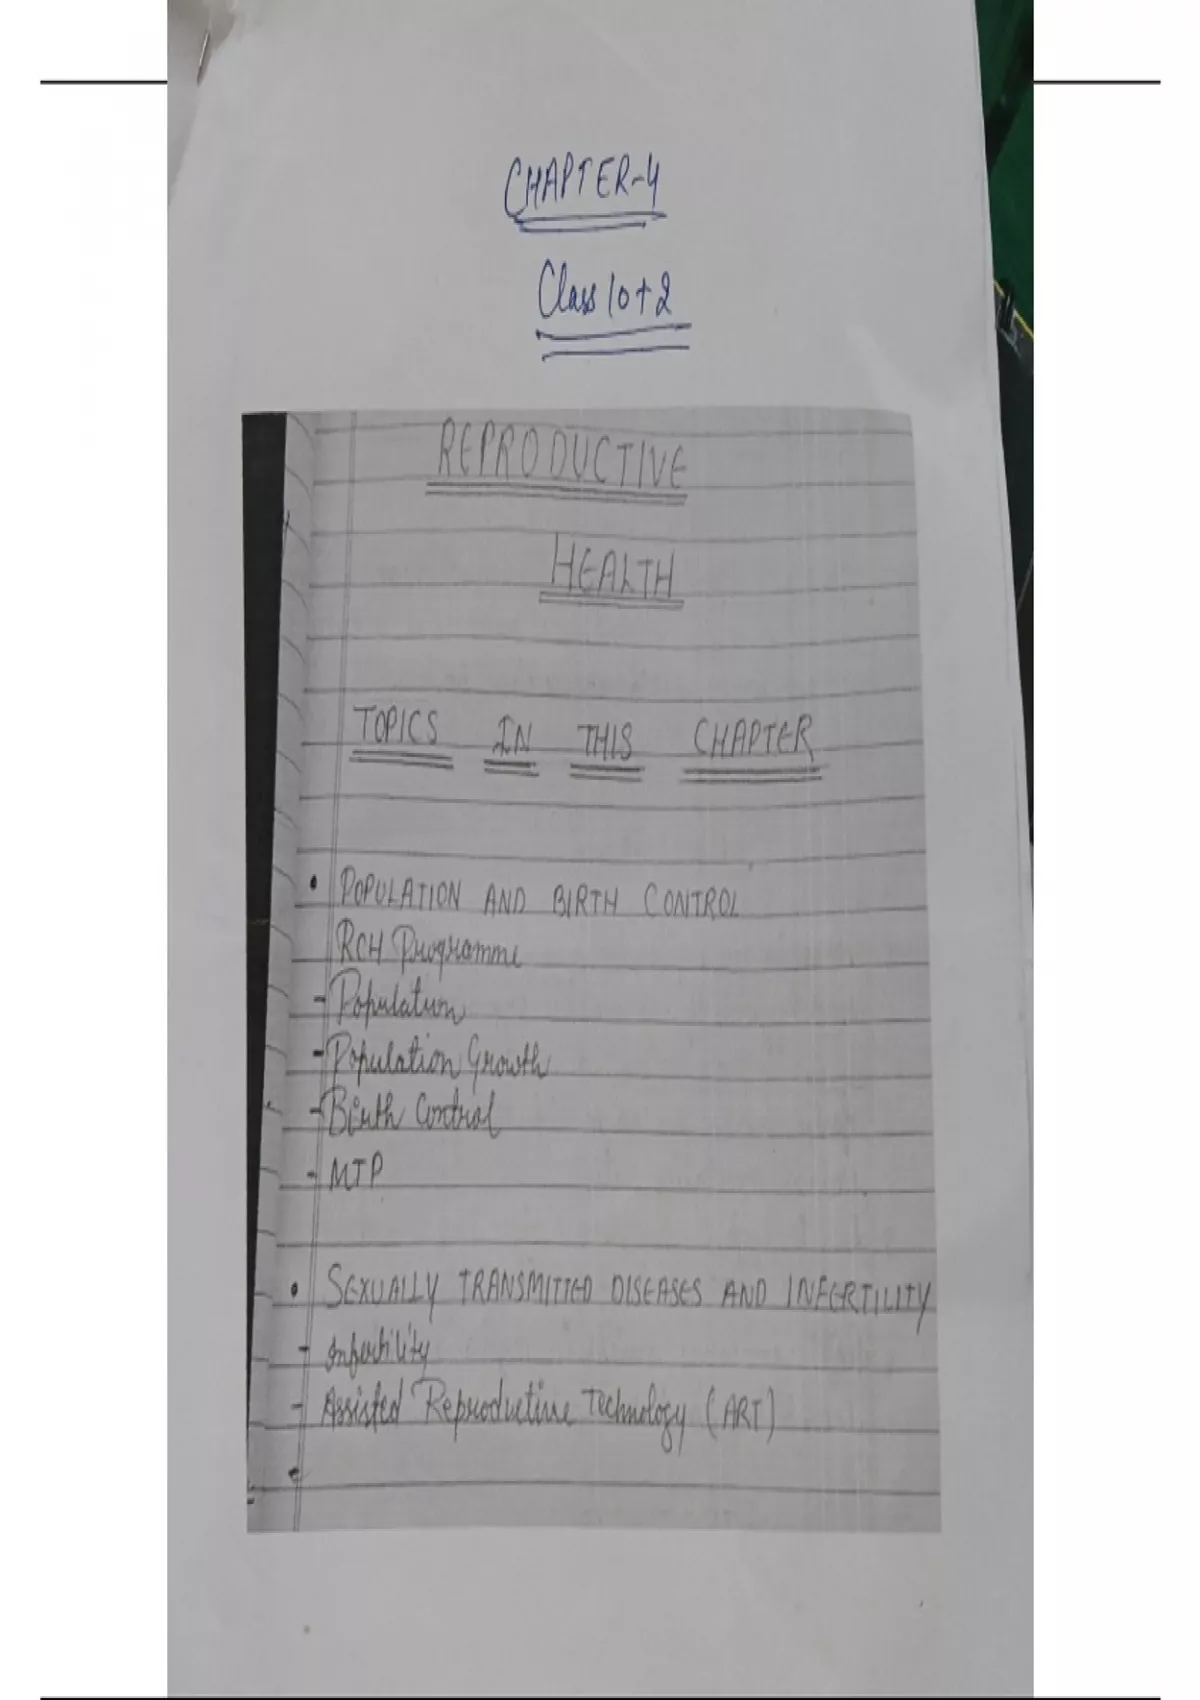 CHAPTER-4
Class 10+2
REPRODUCTIVE
HEALTH
TOPICS IN THIS CHAPTER
• POPULATION AND BIRTH CONTROL
RCH Programme
- Population
- Population Growth
- Birth Control
- MTP
• SEXUALLY TRANSMITTED DISEASES AND INFERTILITY
- Infertility
- Assisted Reproductive Technology (ART)